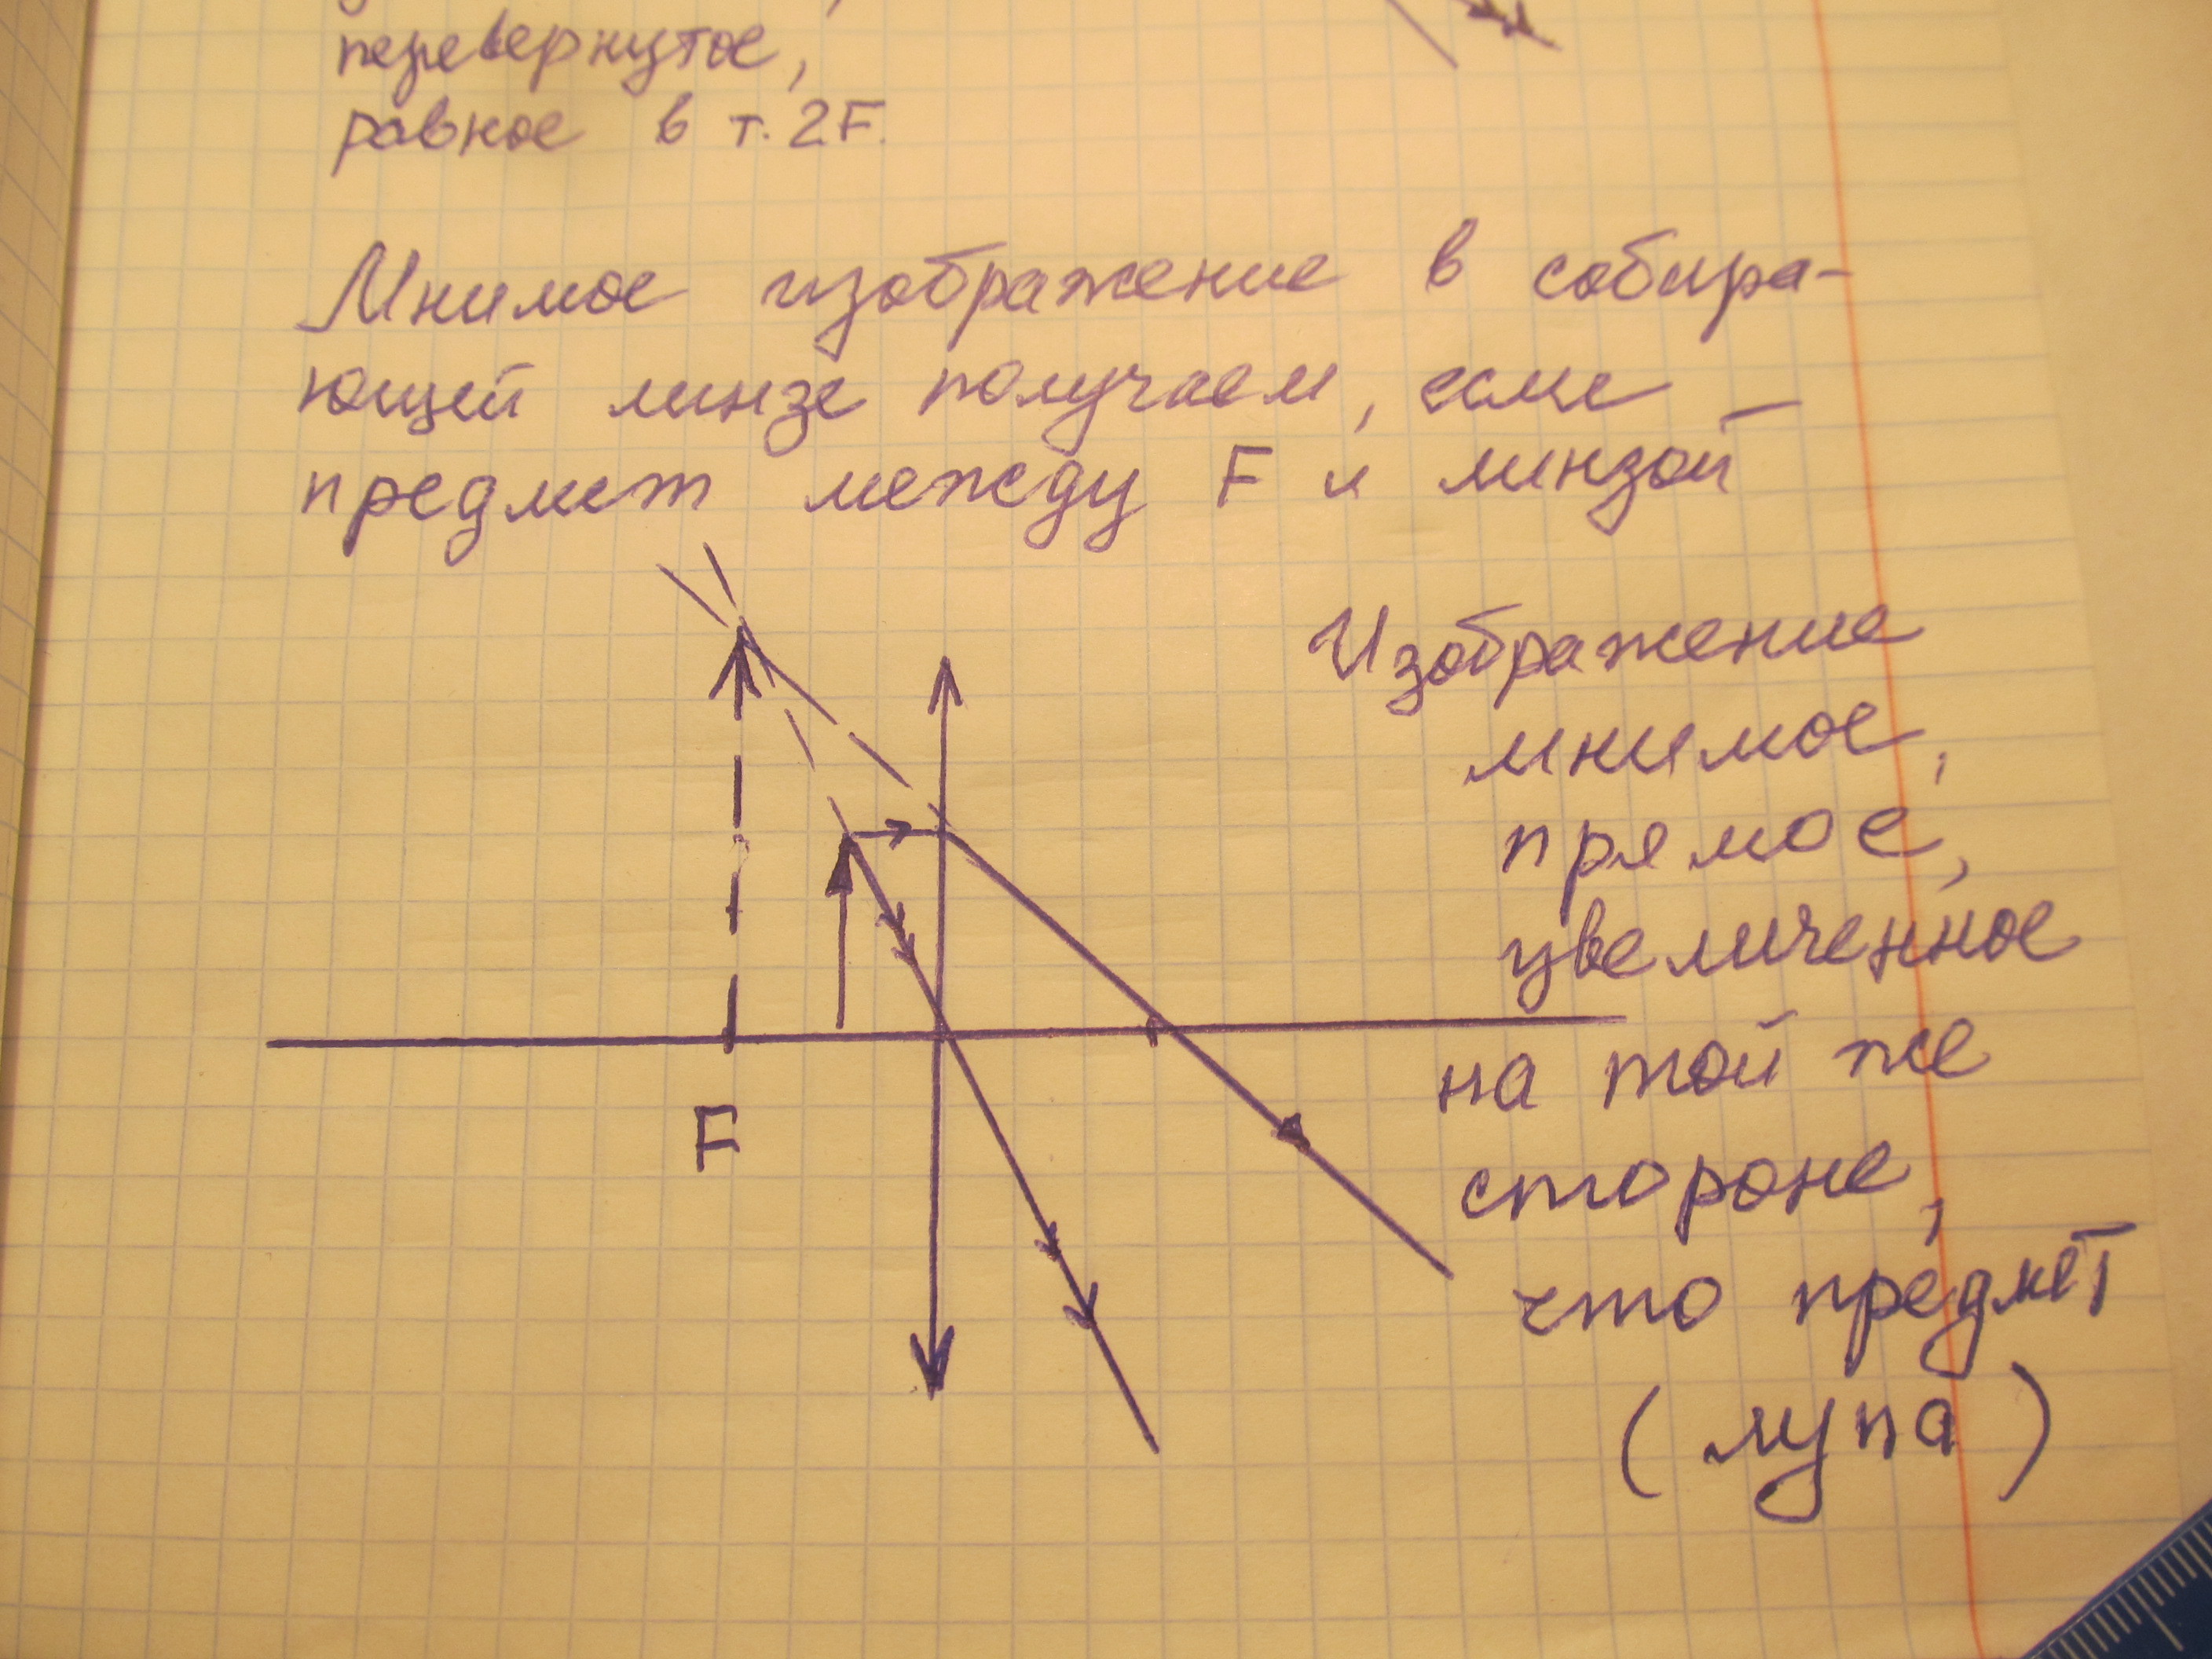 перевернутое,
равное в т. 2F.
Мнимое изображение в собира-
ющей линзе получаем, если
предмет между F и линзой
Изображение
мнимое,
прямое,
увеличенное
на той же
стороне,
что предмет
(лупа)
F